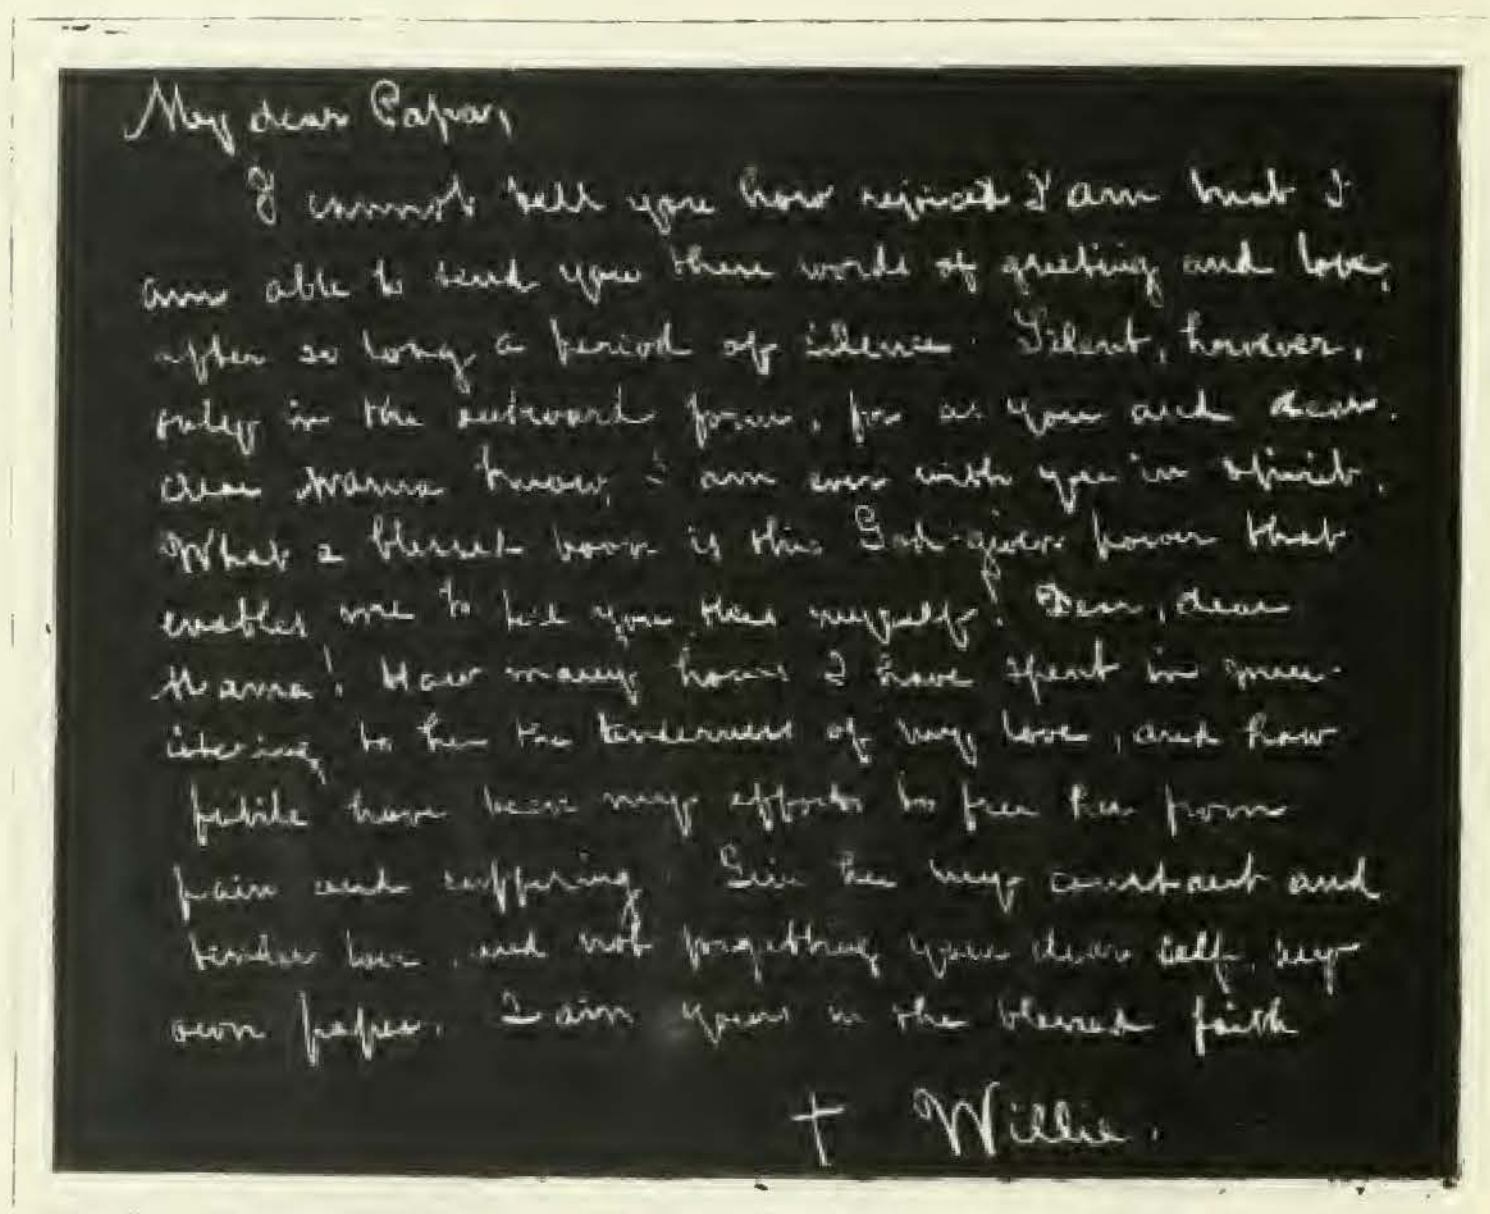 My dear Papa,
I cannot tell you how rejoiced I am that I
am able to send you these words of greeting and love,
after so long a period of silence. Silent, however,
only in the outward form, for as you and dear
dear Mama know, I am ever with you in spirit.
What a blessed boon is this God-given power that
enables me to tell you this myself! Dear, dear
Mama! How many hours I have spent in minis-
istering to her the tenderness of my love, and how
futile have been my efforts to free her from
pain and suffering. Give her my constant and
tender love, and not forgetting your dear self, my
own papa. I am yours in the blessed faith
† Willie.